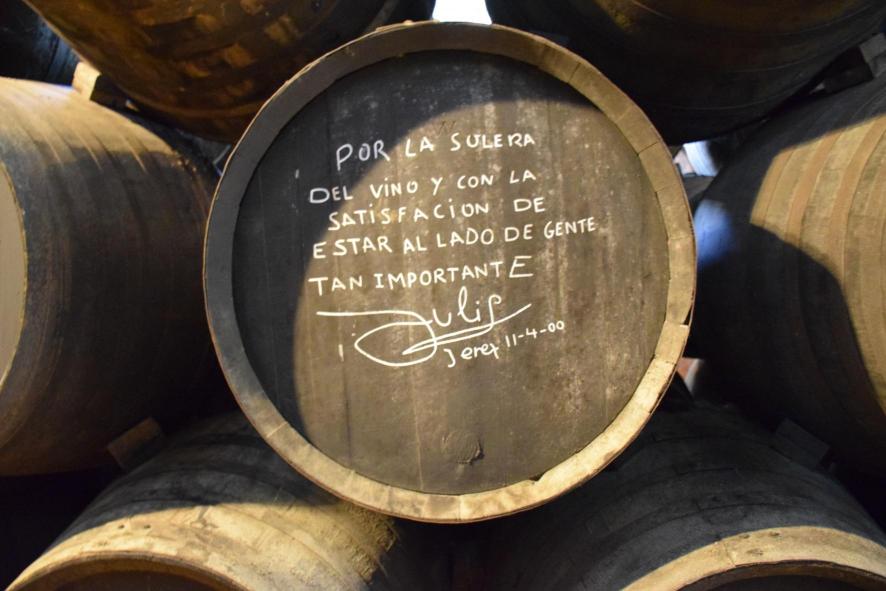 POR LA SULERA
DEL VINO Y CON LA
SATISFACION DE
ESTAR AL LADO DE GENTE
TAN IMPORTANTE
Jerez 11-4-00